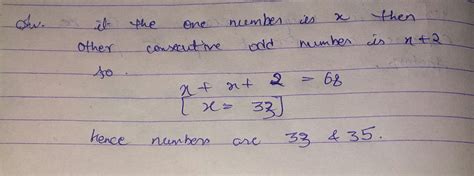 Soln. if the one number is x then
other consecutive odd number is x+2
so.
x + x + 2 = 68
[ x = 33 ]
hence numbers are 33 & 35.